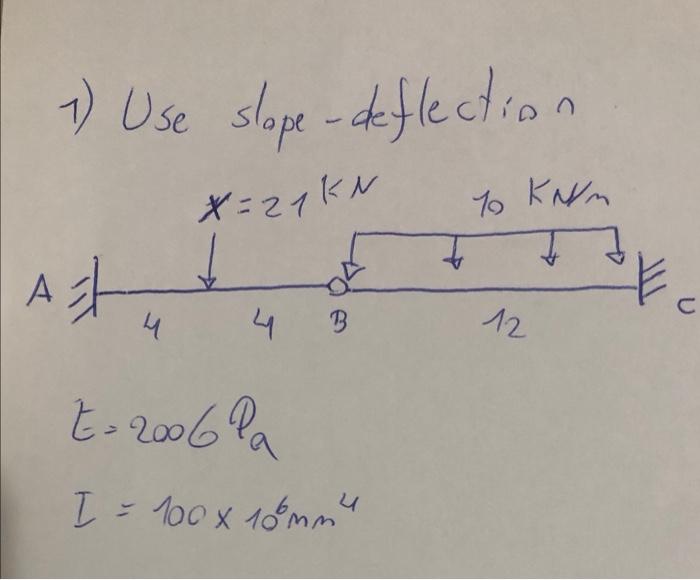 1) Use slope-deflection
X=21 KN
10 KN/m
A
4
4
B
12
C
E=200G Pa
I = 100 x 10^6 mm^4